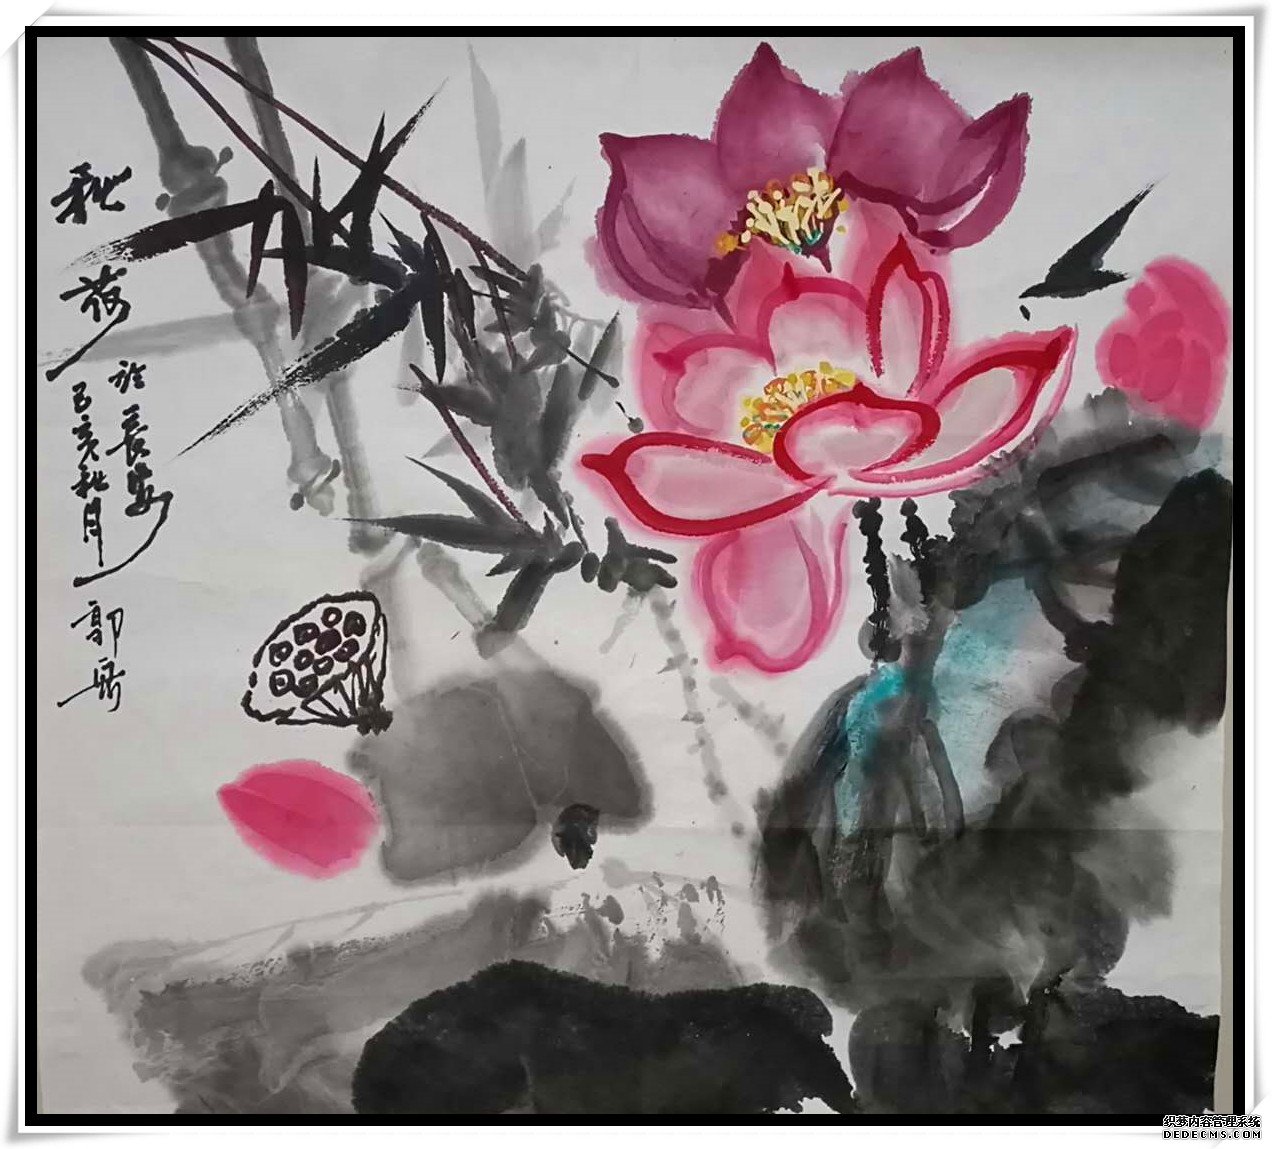 秋荷
己亥秋月
於長安
郭
织梦内容管理系统
DEDECMS.COM